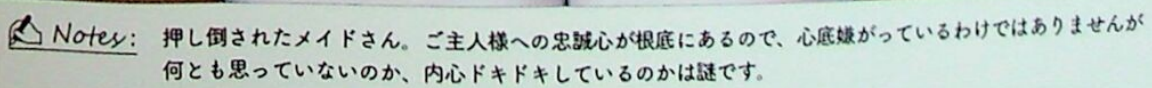 Notes: 押し倒されたメイドさん。ご主人様への忠誠心が根底にあるので、心底嫌がっているわけではありませんが
何とも思っていないのか、内心ドキドキしているのかは謎です。